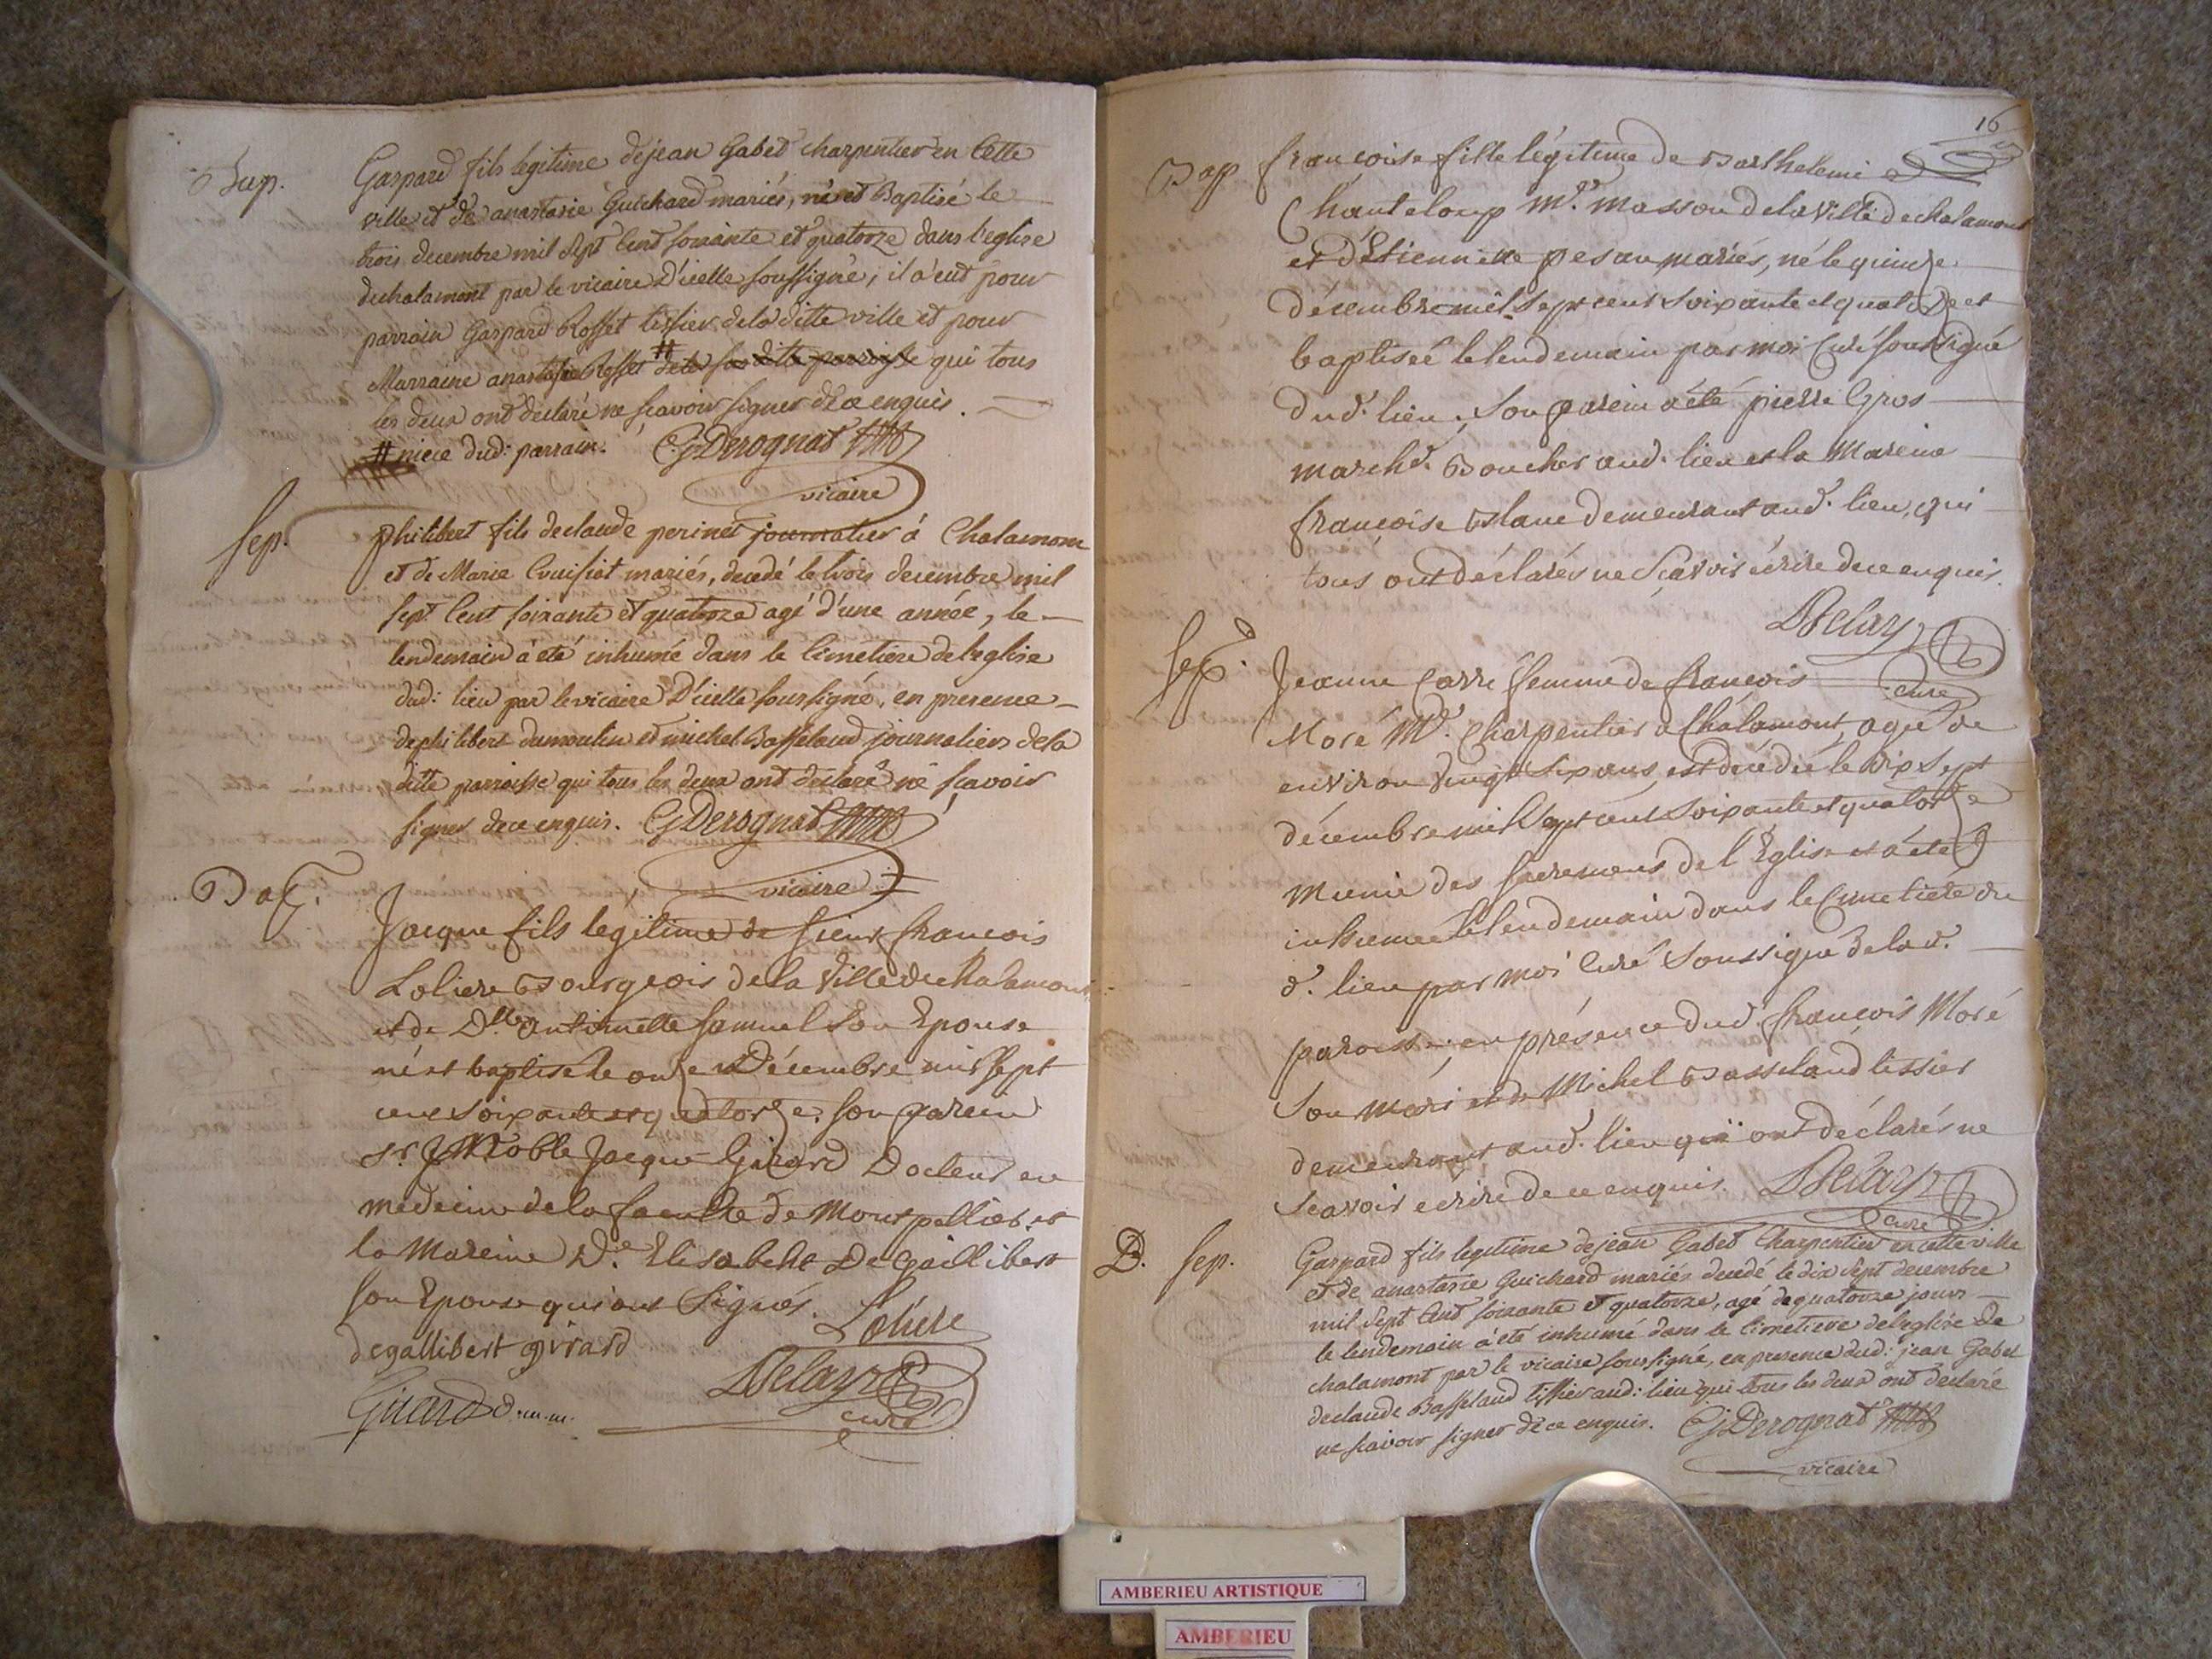 Bap.
Gaspard fils legitime de jean Gabet charpentier en Cette
ville et de anastasie Guichard mariés, né et Baptisé le
trois decembre mil Sept Cent soixante et quatorze dans l'eglise
de chalamont par le vicaire D'icelle soussigné, il a eut pour
parrain Gaspard Rosset tissier de la ditte ville et pour
Marraine anastasie Rosset # de la ditte parroisse qui tous
les deux ont declaré ne scavoir signer de ce enquis.
# niece dud: parrain. CJ Derognat
vicaire
Sep.
philibert fils de claude perinet journalier à Chalamont
et de Marie Cruisiat mariés, decedé le trois decembre mil
sept Cent soixante et quatorze agé d'une année, le
lendemain a eté inhumé dans le Cimetiere de l'eglise
dud: lieu par le vicaire D'icelle soussigné, en presence
de philibert dumoulin et michel Basseland journaliers de la
ditte parroisse qui tous les deux ont declaré ne scavoir
signer de ce enquis. CJ Derognat
vicaire
Bap.
Jacque fils legitime de sieur françois
Loliere Bourgeois de la Ville de chalamont
et de Dlle antoinette Samuel son Epouse
né et baptisé le onze Décembre mil sept
cent soixante et quatorze. son parein
sr Noble Jacque Girard Docteur en
medecine de la faculté de Montpellier et
la Mareine De. Elisabeht De Gaillibert
son Epouse qui ont Signés. Loliere
degallibert girard
Girard d.m.m.
Delay
curé
16
Bap
françoise fille légitime de Barthelemi
Chanteloup Me. Masson de la Ville de chalamont
et d'Etiennette pesan mariés, né le quinze
décembre mil sept cent soixante et quatorze et
baptiseé le lendemain par moi Curé soussigné
dud. lieu, son parein a été pierre Gros
marchd. Boucher aud. lieu et la Mareine
françoise Blanc demeurant aud. lieu, qui
tous ont déclarés ne Sçavoir écrire de ce enquis.
Delay
Curé
Sep.
Jeanne Carré femme de françois
Moré Md. Charpentier a Chalamont, agé de
environ vingt six ans, est décédée le dix Sept
décembre mil Sept cent Soixante et quatorze
Munie des Sacremens de l'Eglise et a été
inhumeé le lendemain dans le Cimetiére du
d. lieu par moi Curé Soussigné de la d.
paroisse; en présence dud. françois Moré
Son Mari et de Michel Basseland tissier
demeurant aud. lieu qui ont déclarés ne
Scavoir ecrire de ce enquis. Delay
Curé
D. Sep.
Gaspard fils legitime de jean Gabet Charpentier en cette ville
et de anastasie Guichard mariés decedé le dix Sept decembre
mil Sept Cent soixante et quatorze, agé de quatorze jours
le lendemain a été inhumé dans le Cimetiere de l'eglise de
chalamont par le vicaire soussigné, en presence dud: jean Gabet
de claude Basseland tissier aud: lieu qui tous les deux ont declaré
ne scavoir signer de ce enquis. CJ Derognat
vicaire
AMBERIEU ARTISTIQUE
AMBERIEU